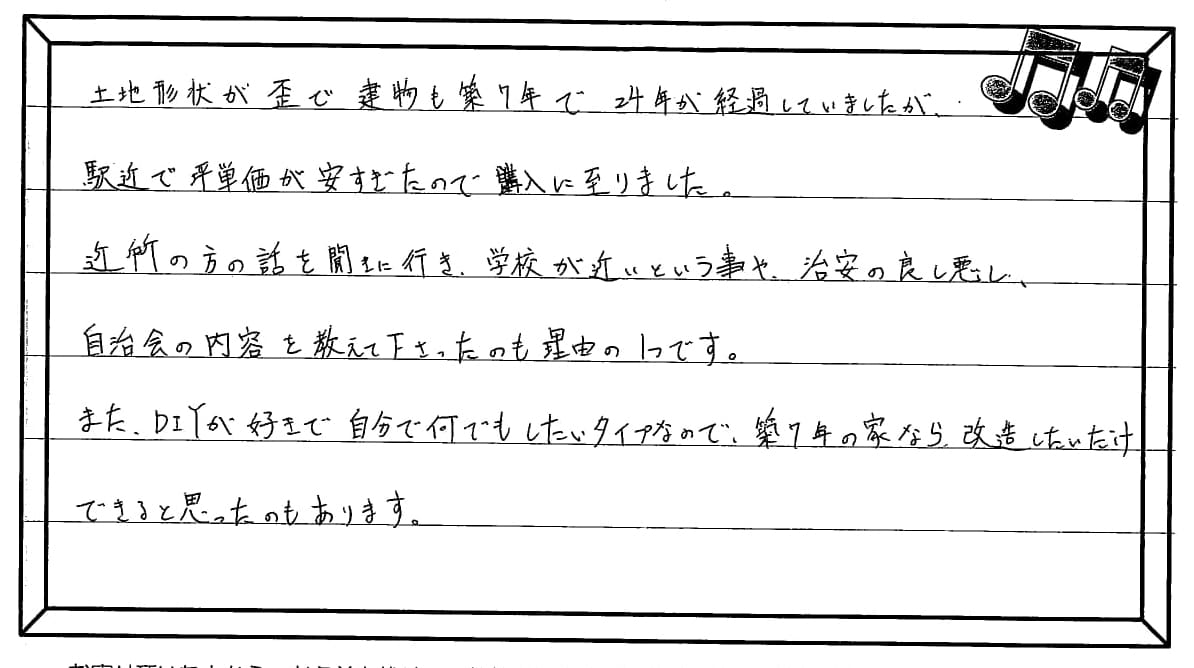 土地形状が歪で建物も築7年で24年が経過していましたが、
駅近で坪単価が安すぎたので購入に至りました。
近所の方の話を聞きに行き、学校が近いという事や、治安の良し悪し、
自治会の内容を教えて下さったのも理由の1つです。
また、DIYが好きで自分で何でもしたいタイプなので、築7年の家なら、改造したいだけ
できると思ったのもあります。